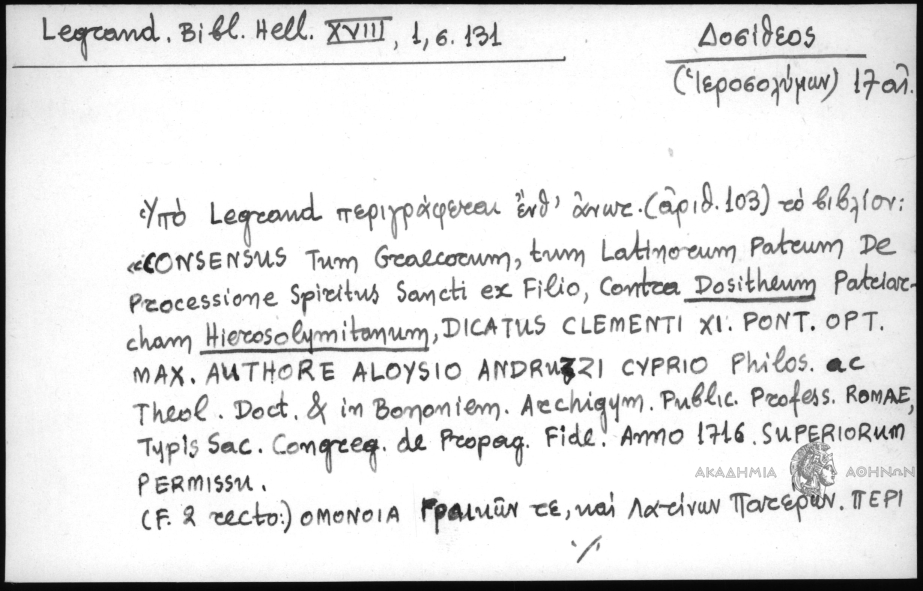 Legrand. Bibl. Hell. XVIII, 1, σ. 131
Δοσίθεος
(Ἱεροσολύμων) 17 αἰ.
Ὑπό Legrand περιγράφεται ἔνθ' ἀνωτ. (ἀριθ. 103) τό βιβλίον:
«CONSENSUS Tum Graecorum, tum Latinorum Patrum De
Processione Spiritus Sancti ex Filio, Contra Dositheum Patriar-
cham Hierosolymitanum, DICATUS CLEMENTI XI. PONT. OPT.
MAX. AUTHORE ALOYSIO ANDRUZZI CYPRIO Philos. ac
Theol. Doct. & in Bononiem. Archigym. Public. Profess. ROMAE,
Typis Sac. Congreg. de Propag. Fide. Anno 1716. SUPERIORUM
PERMISSU.
ΑΚΑΔΗΜΙΑ ΑΘΗΝΩΝ
(F. 2 recto:) ΟΜΟΝΟΙΑ Γραικῶν τε, καί Λατίνων Πατερων. ΠΕΡΙ
./.